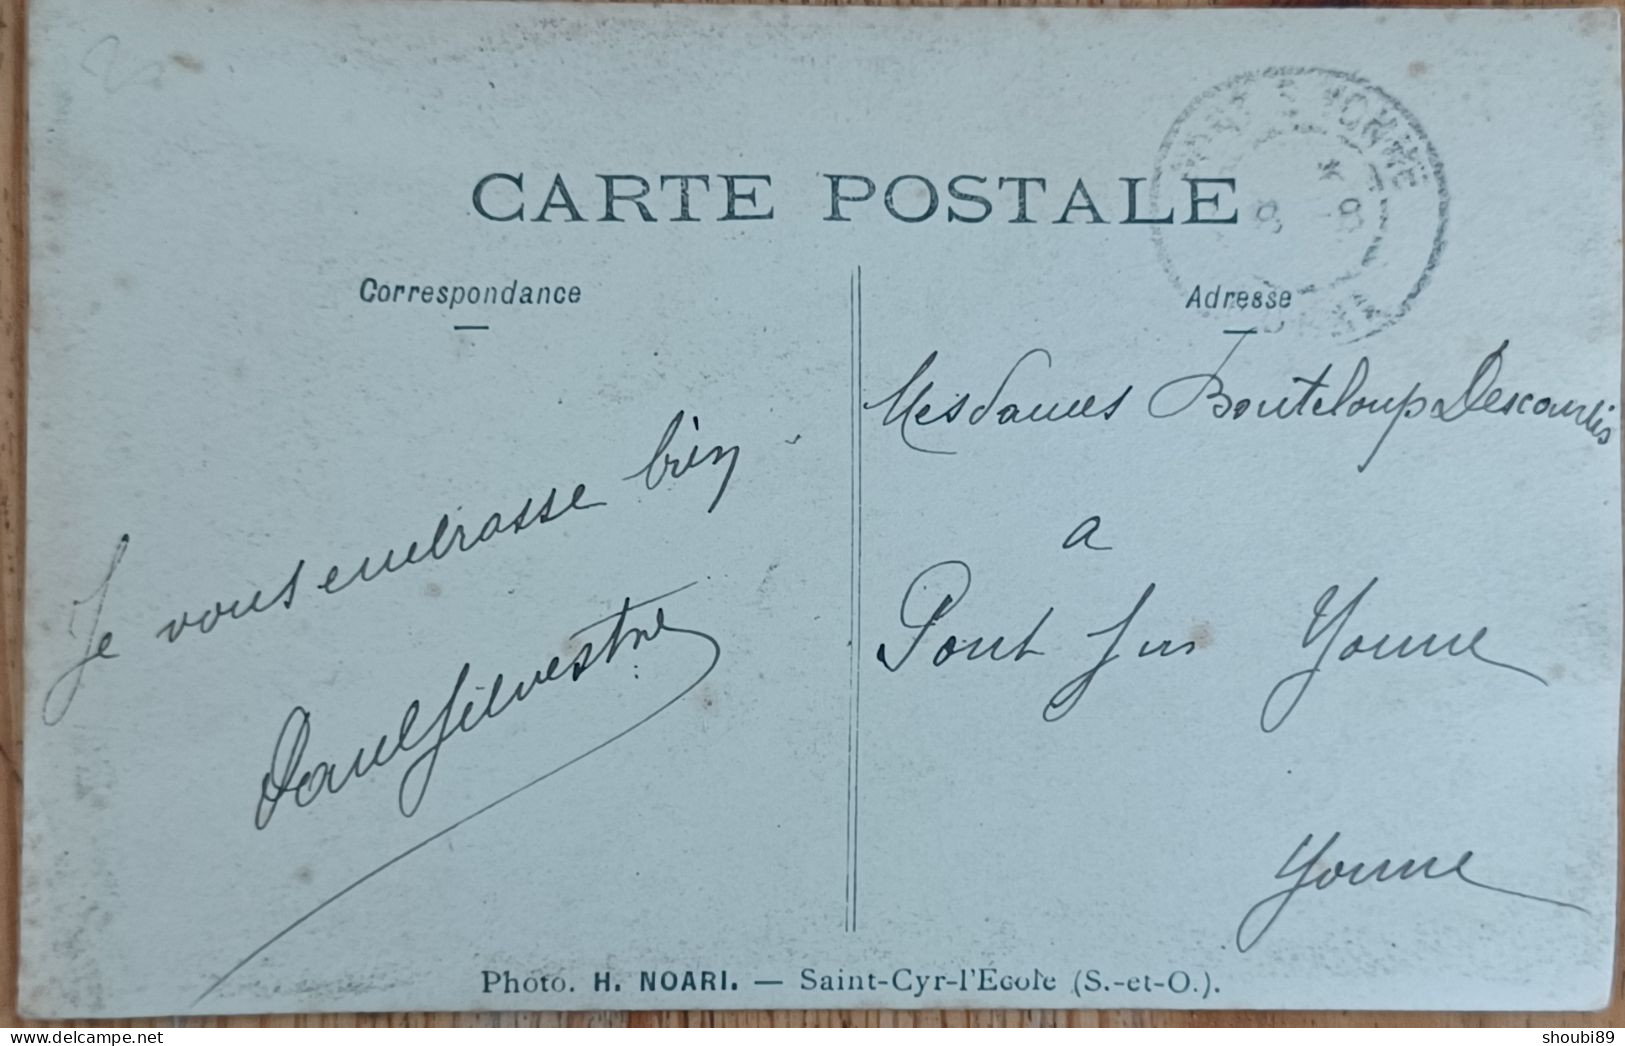 CARTE POSTALE
Correspondance
Je vous embrasse bien
Paul Silvestre
Adresse
Mesdames Bouteloup Descourtis
a
Pont sur Yonne
Yonne
Photo. H. NOARI. — Saint-Cyr-l'École (S.-et-O.).
delcampe.net
shoubi89